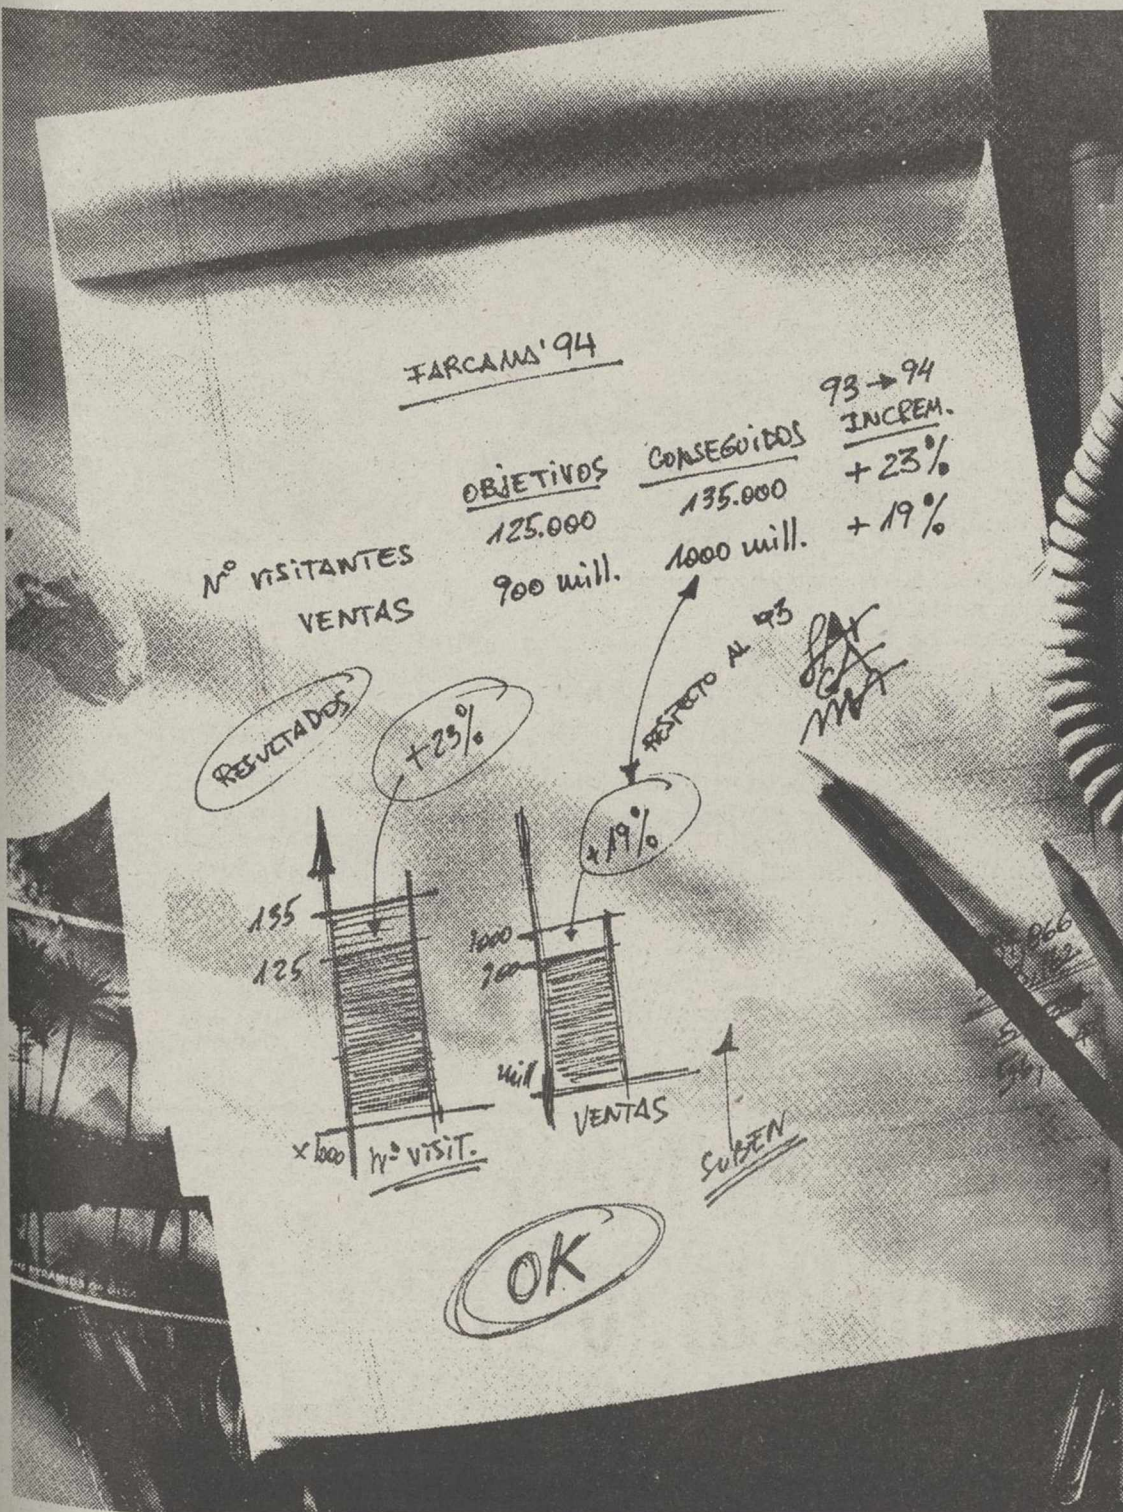 FARCAMA'94
93→94
OBJETIVOS CONSEGUIDOS INCREM.
Nº VISITANTES 125.000 135.000 +23%
VENTAS 900 mill. 1000 mill. +19%
RESPECTO AL 93
FAR
CA
MA
RESULTADOS +23%
+19%
135
125
1000
900
mill
x1000 Nº VISIT.
VENTAS
SUBEN
OK